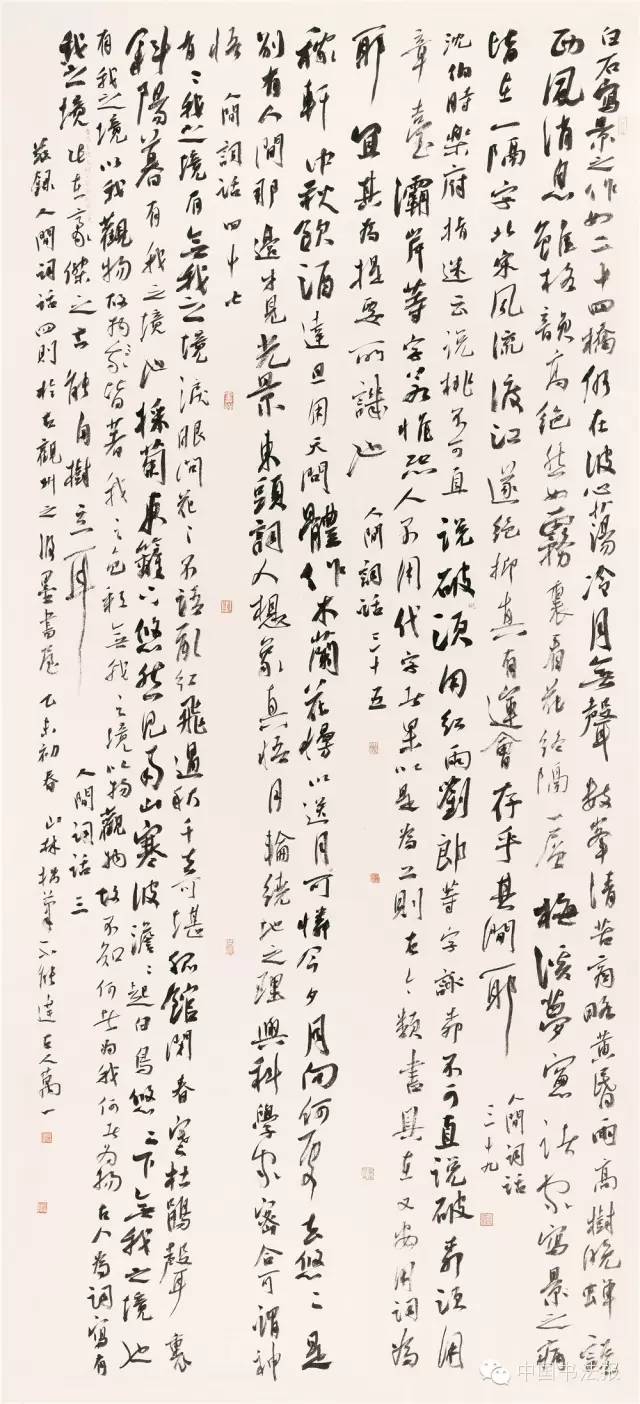 白石寫景之作如二十四橋仍在波心蕩冷月無聲數峯清苦商略黃昏雨高樹晚蟬說
西風消息雖格韻高絕然如霧裏看花終隔一層梅溪夢窗諸家寫景之病
皆在一隔字北宋風流渡江遂絕抑真有運會存乎其間耶
人間詞話
三十九
沈伯時樂府指迷云說桃不可直說破須用紅雨劉郎等字詠柳不可直說破柳須用
章臺灞岸等字若惟恐人不用代字者果以是為工則古今類書具在又安用詞為
耶宜其為提要所譏也
人間詞話三十五
稼軒中秋飲酒達旦用天問體作木蘭花慢以送月可憐今夕月向何處去悠悠是
別有人間那邊才見光景東頭詞人想象真悟月輪繞地之理與科學家密合可謂神
悟
人間詞話四十七
有有我之境有無我之境淚眼問花花不語亂紅飛過秋千去可堪孤館閉春寒杜鵑聲裏
斜陽暮有我之境也採菊東籬下悠然見南山寒波澹澹起白鳥悠悠下無我之境也
有我之境以我觀物故物我皆著我之色彩無我之境以物觀物故不知何者為我何者為物古人為詞寫有
我之境
此在豪傑之士能自樹立耳
人間詞話三
敬錄人間詞話四則於古觀州之
墨書屋乙未初春山林
達古人萬一
中国书法报